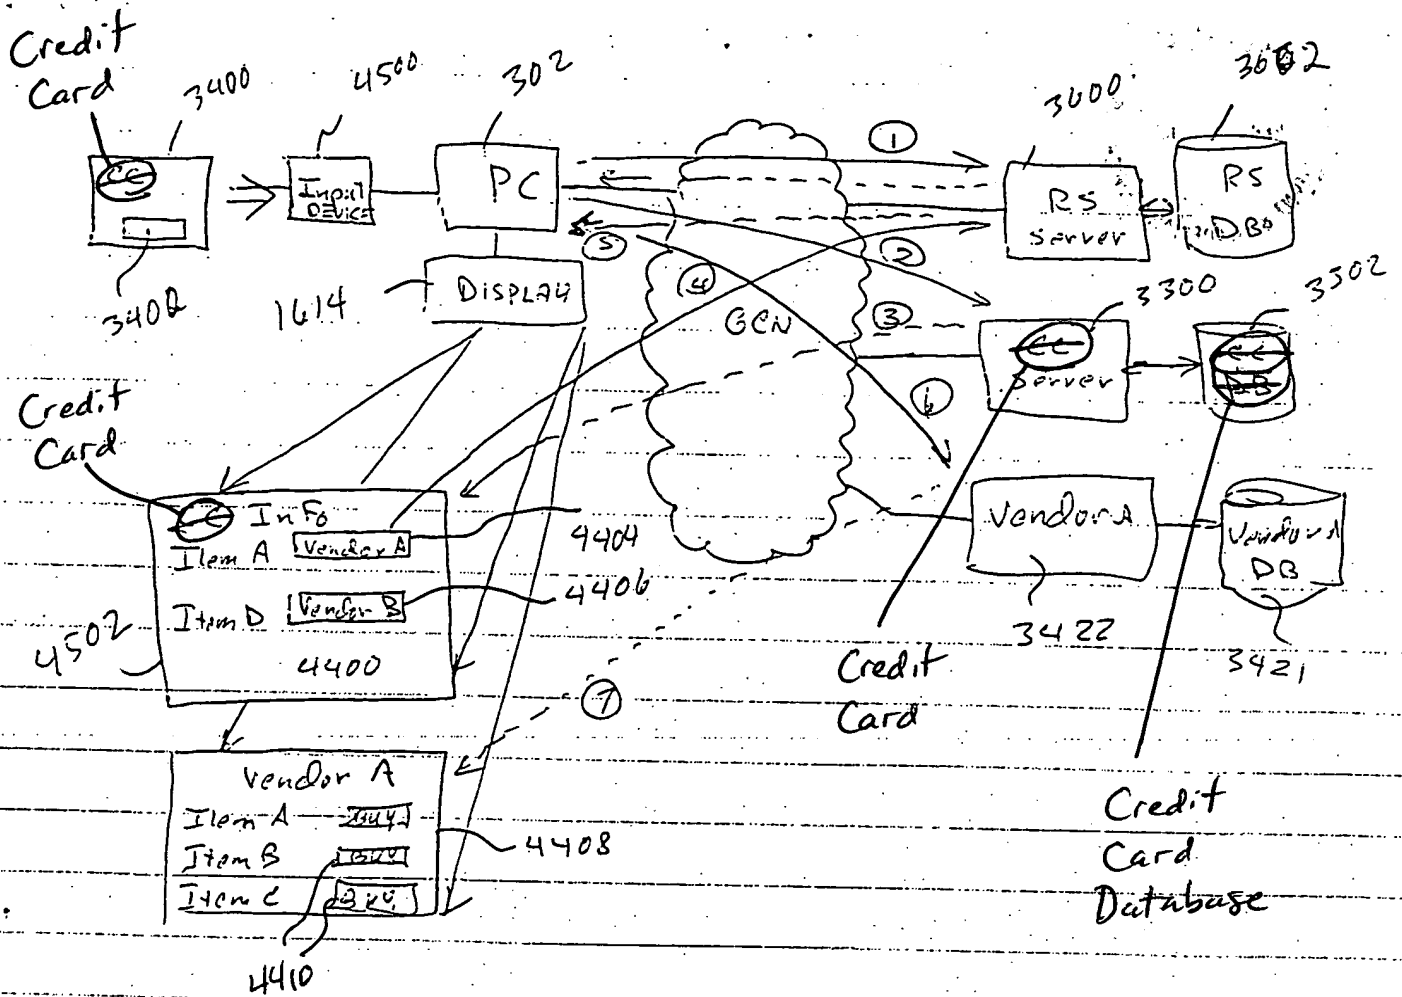 Credit
Card
3400
4500
302
3600
3602
CC
Input
DEVICE
PC
RS
Server
RS
DB
3402
1614
DISPLAY
GCN
1
2
3
4
5
6
7
3300
3302
CC
Server
CC
DB
Credit
Card
CC Info
Item A
Vendor A
4404
Item D
Vendor B
4406
4502
4400
Vendor A
3422
Vendor A
DB
3421
Credit
Card
Vendor A
Item A BUY
Item B BUY
Item C BUY
4408
4410
Credit
Card
Database